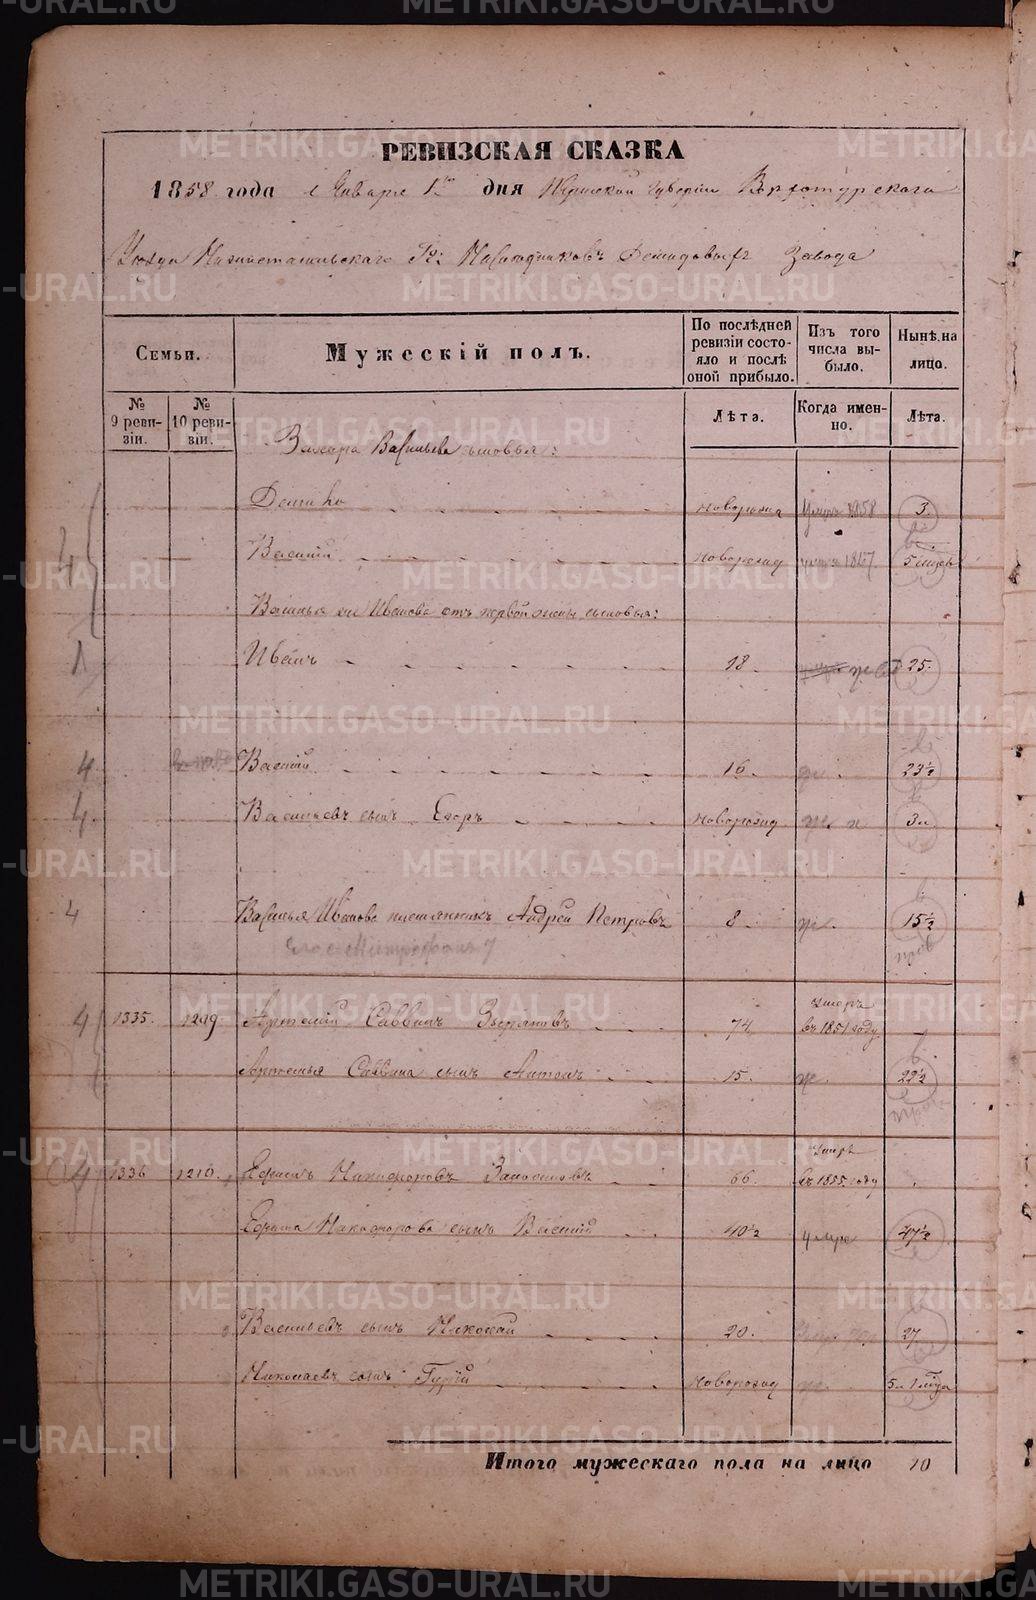 РЕВИЗСКАЯ СКАЗКА
1858 года Января 1го дня Пермской губернии Верхотурского
Уезда Нижнетагильскаго Гг: Наследниковъ Демидовыхъ Завода
Семьи. Мужескій полъ. По послѣдней ревизіи состояло и послѣ оной прибыло. Изъ того числа выбыло. Нынѣ на лицо.
№ 9 ревизіи. № 10 ревизіи. Лѣта. Когда именно. Лѣта.
Захара Васильева сыновья:
новорожд 1858 3.
Василий новорожд 1857 5 мцев
Василья Иванова отъ первой жены сыновья:
1 Иванъ 18. 25.
4 Василий 16. 23½
4. Васильевъ сынъ Егоръ новорожд 3 м.
4 Василья Иванова племянникъ Андрей Петровъ 8 15½
4 1335. 1209 Артемий Саввинъ 74 умеръ въ 1851 году
Артемья Саввина сынъ Антонъ 15. 22½
4 1336 1210. Ефимъ Никифоровъ 66. умеръ въ 1855 году
Ефима Никифорова сынъ Василий 40½ 47½
Васильевъ сынъ Николай 20. 27
Николаевъ сынъ Гурій новорожд
Итого мужескаго пола на лицо 10
METRIKI.GASO-URAL.RU